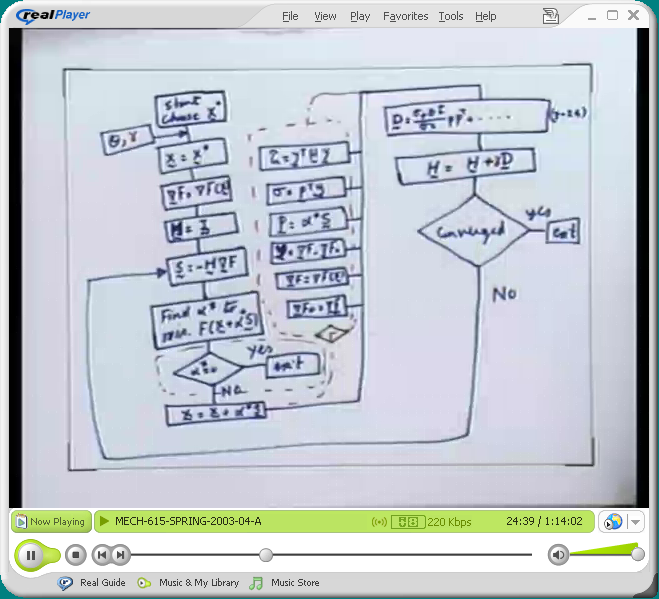 realPlayer
File View Play Favorites Tools Help
Start
choose X°
θ, γ
X = X°
∇F = ∇F(X)
H = I
S = -H∇F
Find α* to
min. F(X+α*S)
α*=0
yes
exit
No
X = X + α*S
τ = yᵀHy
σ = pᵀy
P = α*S
Y = ∇F-∇F₀
∇F = ∇F(X)
∇F₀ = ∇F
H = H + D
Converged
yes
exit
No
Now Playing
MECH-615-SPRING-2003-04-A
220 Kbps
24:39 / 1:14:02
Real Guide
Music & My Library
Music Store